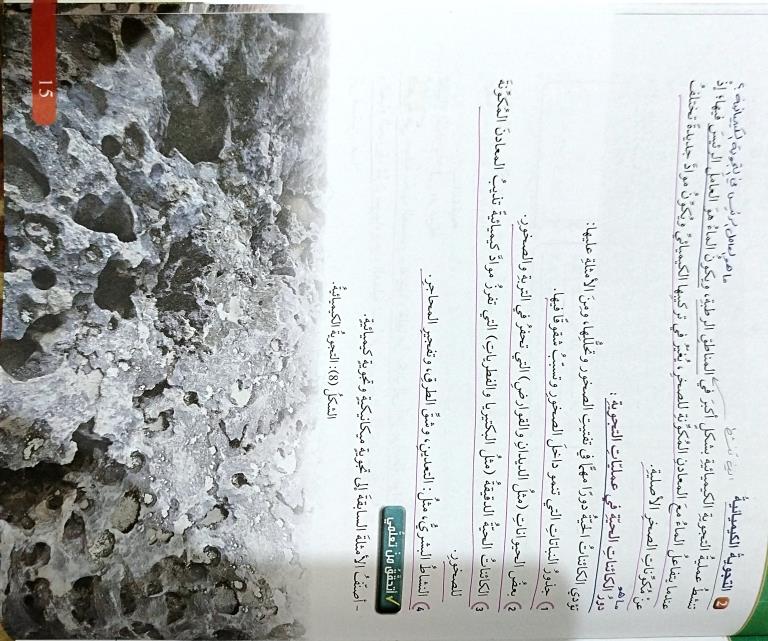 2 التجويةُ الكيميائيةُ
اين تنشط
تنشطُ عمليةُ التجويةِ الكيميائيةِ بشكلٍ أكبرَ في المناطقِ الرطبةِ، ويكونُ الماءُ هوَ العاملَ الرئيسَ فيها؛ إذْ
ما هو العامل الرئيس في التجوية الكيميائية ؟
عندما يتفاعلُ الماءُ معَ المعادنِ المُكوِّنةِ للصخرِ، يُغيّرُ في تركيبِها الكيميائيِّ ويُكوِّنُ موادَّ جديدةً تختلفُ
عنْ مُكوِّناتِ الصخرِ الأصليةِ.
ماهو
دورُ الكائناتِ الحيّةِ في عمليّاتِ التجويةِ :
تؤدي الكائناتُ الحيّةُ دورًا مهمًّا في تفتيتِ الصخورِ وتحلُّلِها، ومنَ الأمثلةِ عليها:
1) جذورُ النباتاتِ التي تنمو داخلَ الصخورِ وتسبّبُ شقوقًا فيها.
2) بعضُ الحيواناتِ (مثلُ الديدانِ والقوارضِ) التي تحفرُ في التربةِ والصخورِ.
3) الكائناتُ الحيّةُ الدقيقةُ (مثلُ البكتيريا والفطرياتِ) التي تفرزُ موادَّ كيميائيةً تذيبُ المعادنَ المُكوِّنةَ
للصخورِ.
4) النشاطُ البشريُّ، مثلُ: التعدينِ، وشقِّ الطرقِ، وتفجيرِ المحاجرِ.
✓ أتحقَّقُ منْ تعلُّمي
- أصنفُ الأمثلةَ السابقةَ إلى تجويةٍ ميكانيكيةٍ وتجويةٍ كيميائيةٍ.
الشكلُ (8): التجويةُ الكيميائيةُ.
15